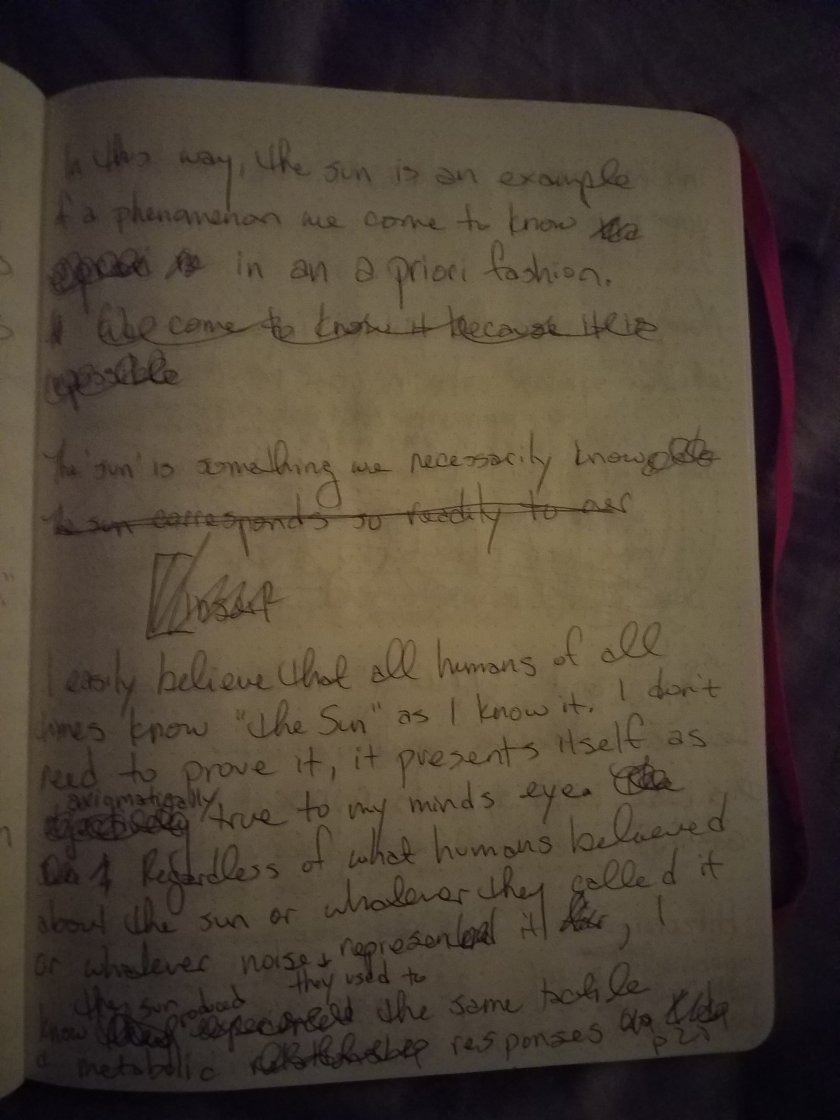 In this way, the sun is an example
of a phenomenon we come to know
in an a priori fashion.
We come to know it because it is
possible
The 'sun' is something we necessarily know
The sun corresponds so readily to our
Insert
I easily believe that all humans of all
times know "the Sun" as I know it. I don't
need to prove it, it presents itself as
axigmatically
true to my minds eye.
Regardless of what humans believed
about the sun or whatever they called it
or whatever noise they used to
represent it, I
know the sun produced the same tactile
metabolic responses
p 25